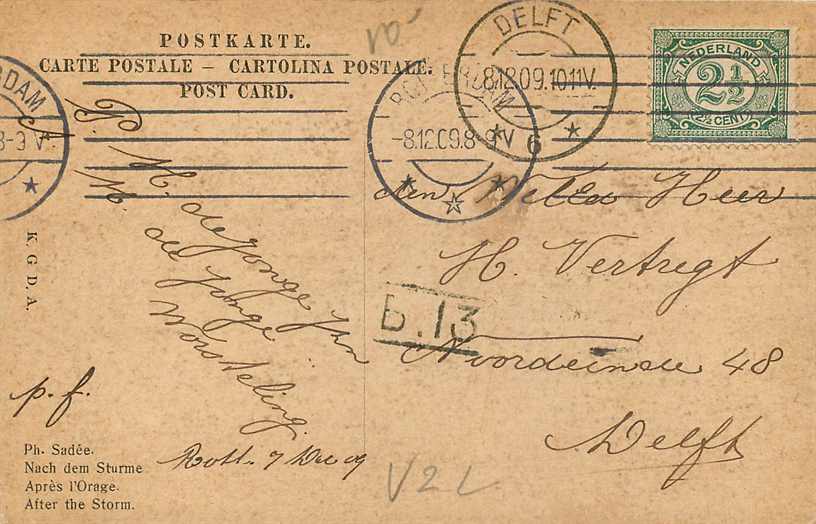 POSTKARTE.
CARTE POSTALE – CARTOLINA POSTALE.
POST CARD.
10-
DELFT
8.12.09.10-11V.
6
NEDERLAND
2 1/2
2½ CENT
RDAM
8-9 V
ROTTERDAM
-8.12.09.8-9V
K. G. D. A.
P. H. de Jonge Jzn
M. de Jonge
Worsteling
p.f.
Rott. 7 Dec 09
den Heer
H. Vertregt
Noordeinde 48
Delft
b.13
V2L
Ph. Sadée.
Nach dem Sturme
Après l'Orage.
After the Storm.